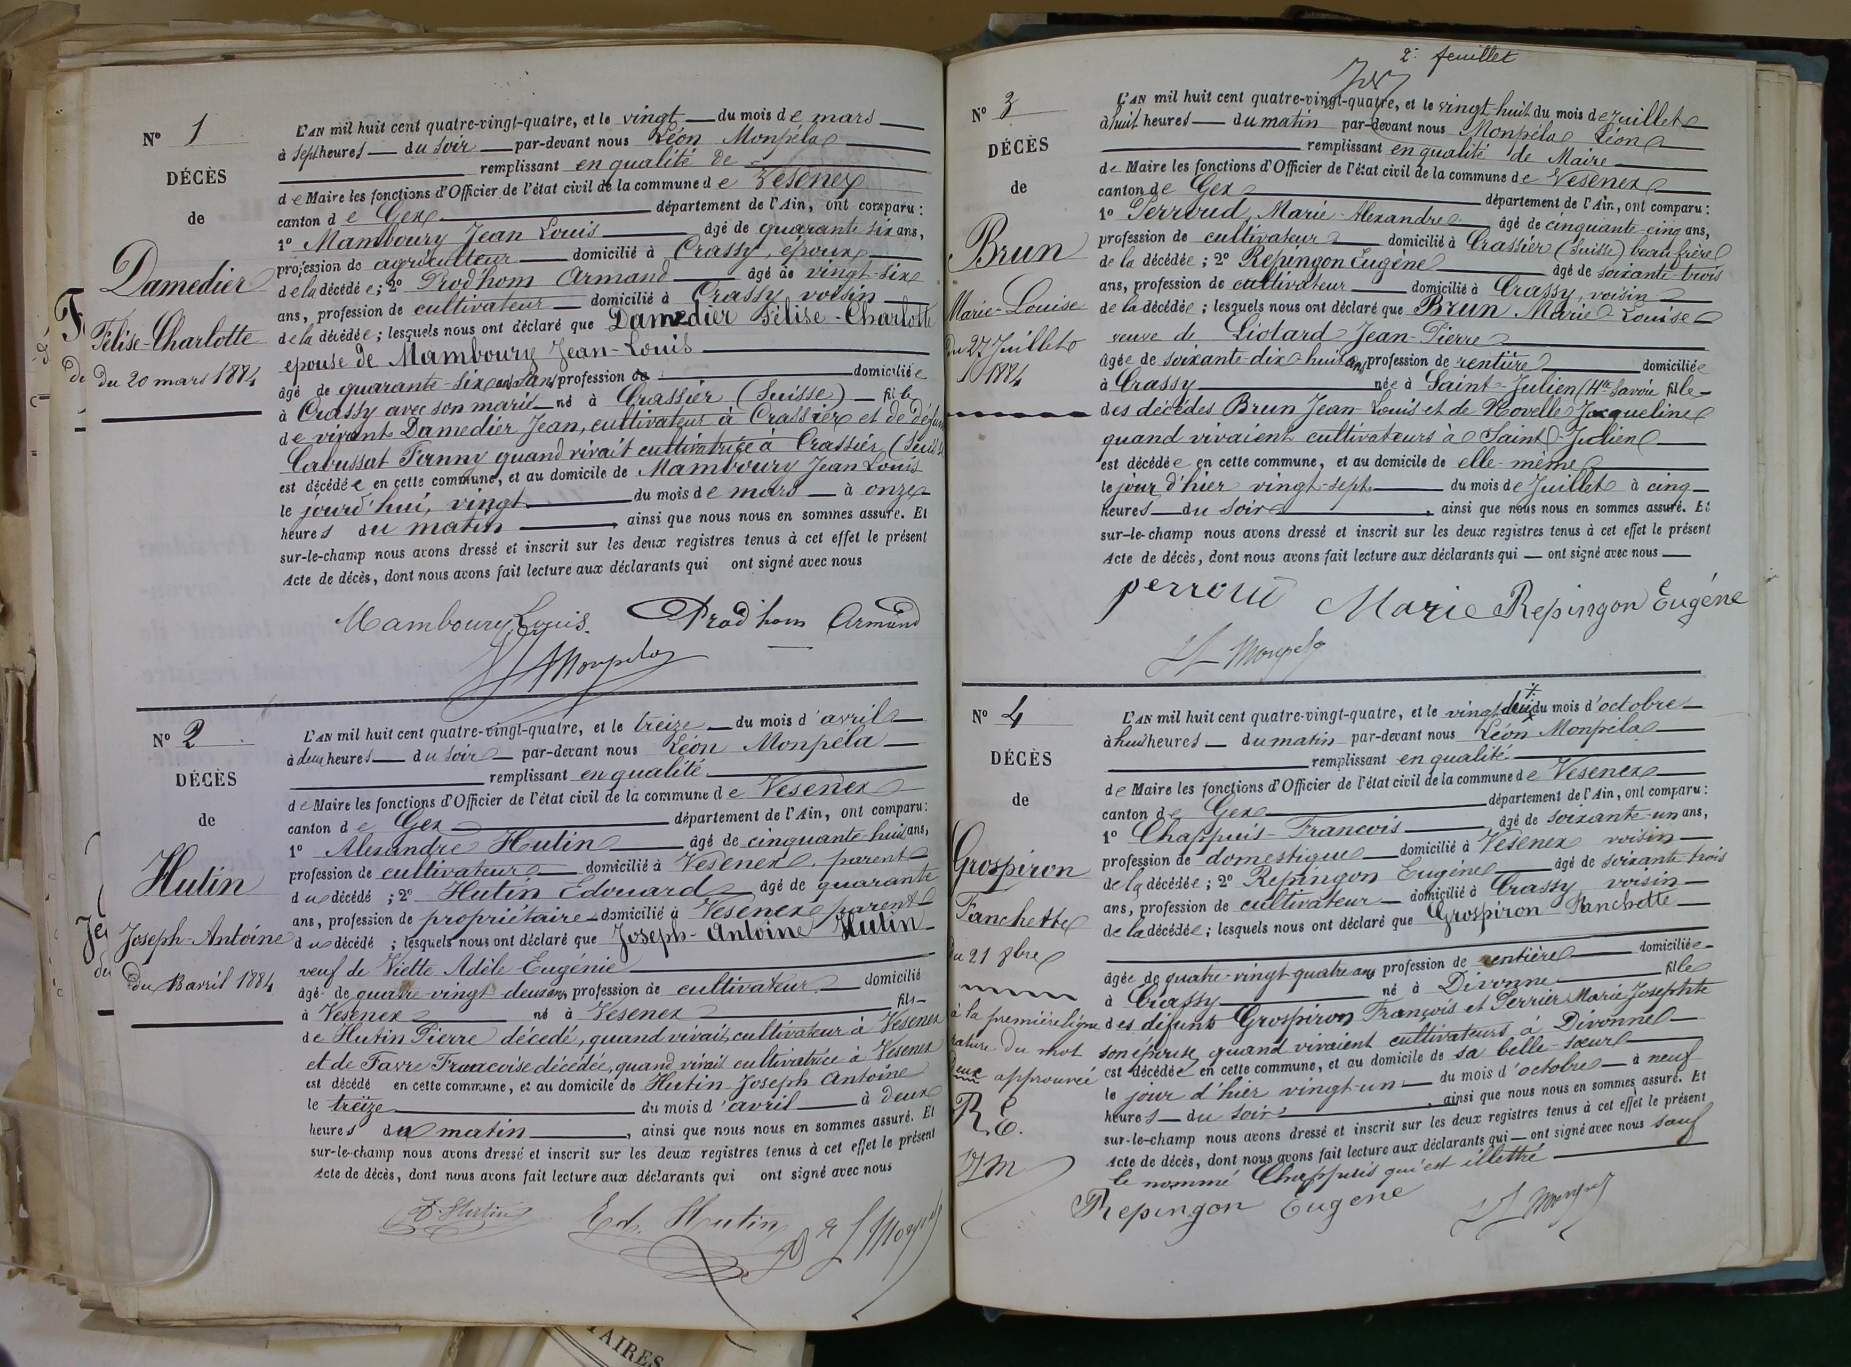 N° 1
DÉCÈS
de
Damedier
Félise-Charlotte
du 20 mars 1884
L'AN mil huit cent quatre-vingt-quatre, et le vingt du mois de mars
à sept heures du soir par-devant nous Léon Monpéla
remplissant en qualité de
de Maire les fonctions d'Officier de l'état civil de la commune de Vesenex
canton de Gex département de l'Ain, ont comparu :
1° Mamboury Jean Louis âgé de quarante six ans,
profession de agriculteur domicilié à Crassy, époux
de la décédée ; 2° Prod'hom Armand âgé de vingt-six
ans, profession de cultivateur domicilié à Crassy voisin
de la décédée ; lesquels nous ont déclaré que Damedier Félise-Charlotte
epouse de Mamboury Jean-Louis
âgé de quarante-six ans sans profession de domiciliée
à Crassy avec son mari né à Crassier (Suisse) fille
de vivant Damedier Jean, cultivateur à Crassier et de défunte
Cabussat Fanny quand vivait cultivatrice à Crassier (Suisse
est décédée en cette commune, et au domicile de Mamboury Jean Louis
le jourd'hui, vingt du mois de mars à onze
heures du matin , ainsi que nous nous en sommes assuré. Et
sur-le-champ nous avons dressé et inscrit sur les deux registres tenus à cet effet le présent
Acte de décès, dont nous avons fait lecture aux déclarants qui ont signé avec nous
Mamboury Louis. Prod'hom Armand
L Monpela
N° 2
DÉCÈS
de
Hutin
Joseph-Antoine
du 13 avril 1884
L'AN mil huit cent quatre-vingt-quatre, et le treize du mois d'avril
à deux heures du soir par-devant nous Léon Monpéla
remplissant en qualité
de Maire les fonctions d'Officier de l'état civil de la commune de Vesenex
canton de Gex département de l'Ain, ont comparu :
1° Alexandre Hutin âgé de cinquante-huit ans,
profession de cultivateur domicilié à Vesenex, parent
du décédé ; 2° Hutin Edouard âgé de quarante
ans, profession de propriétaire domicilié à Vesenex parent
du décédé ; lesquels nous ont déclaré que Joseph-Antoine Hutin
veuf de Viette Adèle-Eugénie
âgé de quatre-vingt-deux ans, profession de cultivateur domicilié
à Vesenex né à Vesenex fils
de Hutin Pierre décédé, quand vivait, cultivateur à Vesenex
et de Favre Françoise décédée, quand vivait cultivatrice à Vesenex
est décédé en cette commune, et au domicile de Hutin Joseph Antoine
le treize du mois d'avril à deux
heures du matin , ainsi que nous nous en sommes assuré. Et
sur-le-champ nous avons dressé et inscrit sur les deux registres tenus à cet effet le présent
Acte de décès, dont nous avons fait lecture aux déclarants qui ont signé avec nous
A. Hutin Ed. Hutin L Monpela
2e feuillet
N° 3
DÉCÈS
de
Brun
Marie-Louise
du 27 Juillet
1884
L'AN mil huit cent quatre-vingt-quatre, et le vingt-huit du mois de Juillet
à huit heures du matin par-devant nous Monpéla Léon
remplissant en qualité de Maire
de Maire les fonctions d'Officier de l'état civil de la commune de Vesenex
canton de Gex département de l'Ain, ont comparu :
1° Perroud, Marie-Alexandre âgé de cinquante-cinq ans,
profession de cultivateur domicilié à Crassier (Suisse) beau frère
de la décédée ; 2° Repingon Eugène âgé de soixante-trois
ans, profession de cultivateur domicilié à Crassy, voisin
de la décédée ; lesquels nous ont déclaré que Brun Marie-Louise
veuve de Liotard Jean-Pierre
âgée de soixante dix-huit ans, profession de rentière domiciliée
à Crassy née à Saint-Julien (Hte Savoie fille
des décédés Brun Jean-Louis et de Novelle Jacqueline
quand vivaient cultivateurs à Saint-Julien
est décédée en cette commune, et au domicile de elle-même
le jour d'hier vingt-sept du mois de Juillet à cinq
heures du soir , ainsi que nous nous en sommes assuré. Et
sur-le-champ nous avons dressé et inscrit sur les deux registres tenus à cet effet le présent
Acte de décès, dont nous avons fait lecture aux déclarants qui ont signé avec nous
perroud Marie Repingon Eugéne
L Monpela
N° 4
DÉCÈS
de
Grospiron
Fanchette
du 21 8bre
à la première ligne
rature du mot
deux approuvée
R. E.
L M
L'AN mil huit cent quatre-vingt-quatre, et le vingt deux du mois d'octobre
à huit heures du matin par-devant nous Léon Monpéla
remplissant en qualité
de Maire les fonctions d'Officier de l'état civil de la commune de Vesenex
canton de Gex département de l'Ain, ont comparu :
1° Chappuis-François âgé de soixante-un ans,
profession de domestique domicilié à Vesenex voisin
de la décédée ; 2° Repingon Eugène âgé de soixante-trois
ans, profession de cultivateur domicilié à Crassy voisin
de la décédée ; lesquels nous ont déclaré que Grospiron Fanchette
âgée de quatre-vingt-quatre ans profession de rentière domiciliée
à Crassy né à Divonne fille
des défunts Grospiron François et Perrier Marie Josephte
son épouse, quand vivaient cultivateurs à Divonne
est décédée en cette commune, et au domicile de sa belle-sœur
le jour d'hier vingt-un du mois d'octobre à neuf
heures du soir , ainsi que nous nous en sommes assuré. Et
sur-le-champ nous avons dressé et inscrit sur les deux registres tenus à cet effet le présent
Acte de décès, dont nous avons fait lecture aux déclarants qui ont signé avec nous sauf
le nommé Chappuis qui est illettré
Repingon Eugene L Monpela
TAIRES